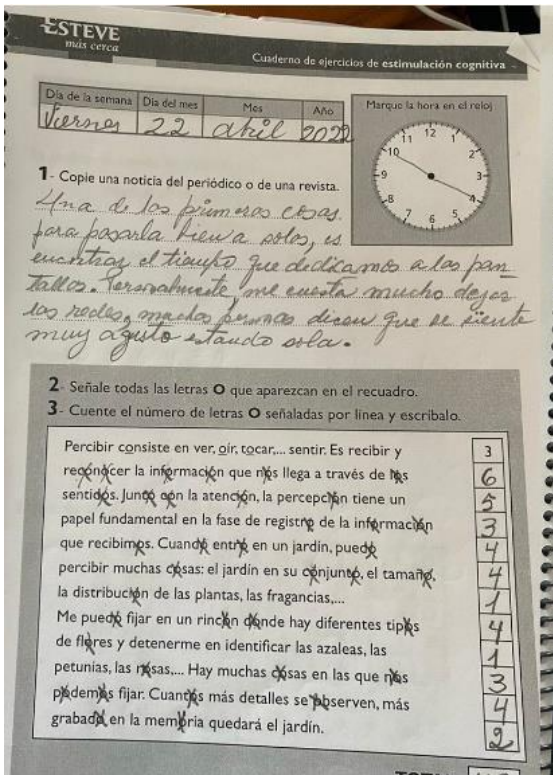 ESTEVE
más cerca
Cuaderno de ejercicios de estimulación cognitiva
Día de la semana Día del mes Mes Año
Viernes 22 abril 2022
Marque la hora en el reloj
12
11 1
10 2
9 3
8 4
7 5
6
1- Copie una noticia del periódico o de una revista.
Una de las primeras cosas
para pasarla bien a solas, es
encontrar el tiempo que dedicamos a las pan
tallas. Personalmente, me cuesta mucho dejar
las redes, muchas personas dicen que se siente
muy agusto estando sola.
2- Señale todas las letras O que aparezcan en el recuadro.
3- Cuente el número de letras O señaladas por línea y escríbalo.
Percibir consiste en ver, oír, tocar,... sentir. Es recibir y 3
reconocer la información que nos llega a través de los 6
sentidos. Junto con la atención, la percepción tiene un 5
papel fundamental en la fase de registro de la información 3
que recibimos. Cuando entro en un jardín, puedo 4
percibir muchas cosas: el jardín en su conjunto, el tamaño, 4
la distribución de las plantas, las fragancias,... 1
Me puedo fijar en un rincón donde hay diferentes tipos 4
de flores y detenerme en identificar las azaleas, las 1
petunias, las rosas,... Hay muchas cosas en las que nos 3
podemos fijar. Cuantos más detalles se observen, más 4
grabado en la memoria quedará el jardín. 2